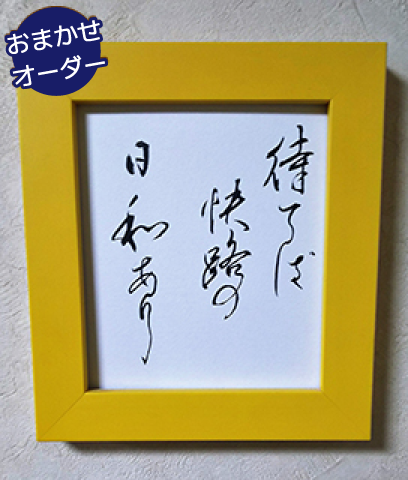 おまかせ
オーダー
待てば
快路の
日和あり